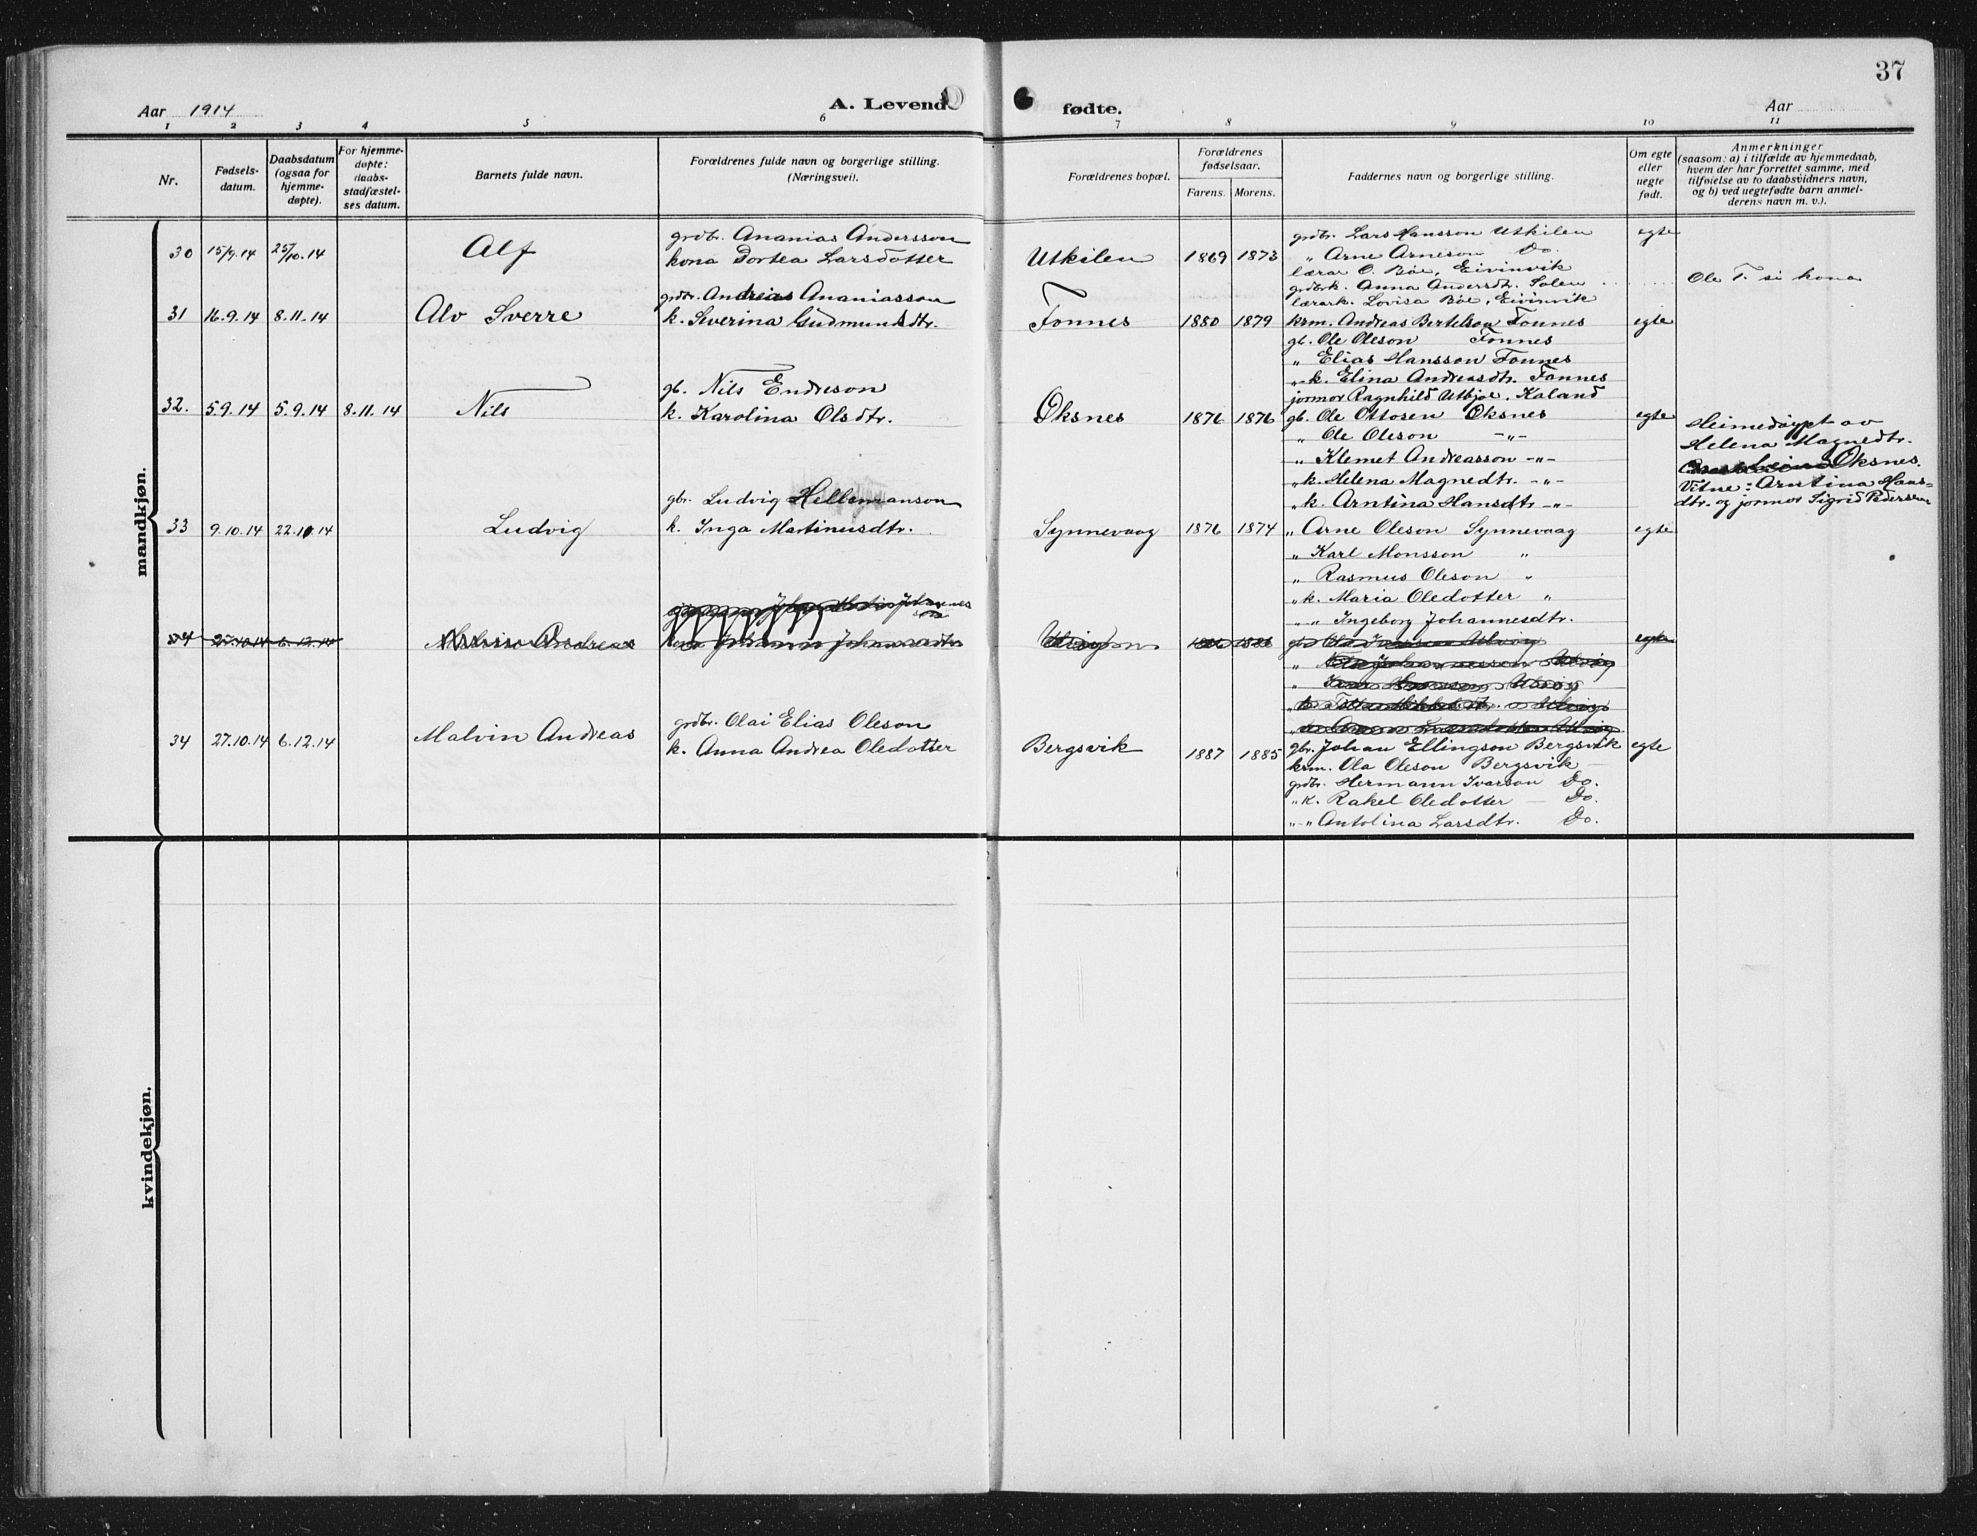 37
Aar 1914 A. Levende fødte. Aar
1 2 3 4 5 6 7 8 9 10 11
Nr.
Fødsels-
datum.
Daabsdatum
(ogsaa for
hjemme-
døpte).
For hjemme-
døpte:
daabs-
stadfæstel-
ses datum.
Barnets fulde navn.
Forældrenes fulde navn og borgerlige stilling.
(Næringsvei).
Forældrenes bopæl.
Forældrenes
fødselsaar.
Farens. Morens.
Faddernes navn og borgerlige stilling.
Om egte
eller
uegte
født.
Anmerkninger
(saasom: a) i tilfælde av hjemmedaab,
hvem der har forrettet samme, med
tilføielse av to daabsvidners navn,
og b) ved uegtefødte barn anmel-
derens navn m. v.).
mandkjøn.
30 15/9.14 25/10.14 Alf
grdbr. Ananias Andersson
kona Dortea Larsdotter
Utkilen 1869 1873
grdbr. Lars Hansson Utkilen
" Arne Arneson Do.
lærar O. Bøe, Eivinvik
grdbrk. Anna Andersdt. Solen
lærark. Lovisa Bøe, Eivinvik
egte
Ole T. si kona
31 16.9.14 8.11.14 Alv Sverre
grdbr. Andreas Ananiasson
k. Severina Gudmundsdtr.
Fonnes 1880 1879
krm. Andreas Bertelson Fonnes
gb. Ole Oleson Fonnes
" Elias Hansson Fonnes
" k. Elina Andreasdt. Fonnes
jormor Ragnhild Utbjoe. Kaland
egte
32. 5.9.14 5.9.14 8.11.14 Nils
gb. Nils Endreson
k. Karolina Olsdtr.
Oksnes 1876 1876
gb. Ole Ottosen Oksnes
" Ole Oleson -"-
" Klemet Andreasson -"-
" k. Helena Magnedtr. -"-
" k. Arntina Hansdtr -"-
egte
Heimedøypt av
Helena Magnedtr.
Oksnes.
Vitne: Arntina Hans-
dtr. og jormor Sigrid Pedersen
33 9.10.14 22.10.14 Ludvig
gbr. Ludvig Hellemanson
k. Inga Martinusdtr.
Synnevaag 1876 1874
" Arne Oleson Synnevaag
" Karl Monsson "
" Rasmus Oleson "
" k. Maria Oledotter "
" " Ingeborg Johannesdtr.
egte
34 27.10.14 6.12.14 Malvin Andreas
egte
34 27.10.14 6.12.14 Malvin Andreas
grdbr. Olai Elias Oleson
k. Anna Andrea Oledotter
Bergsvik 1887 1885
gbr. Johan Ellingson Bergsvik
krm. Ola Oleson Bergsvik
grdbr. Hermann Ivarson Do.
" k. Rakel Oledotter — Do.
" " Antolina Larsdtr. Do.
egte
kvindekjøn.